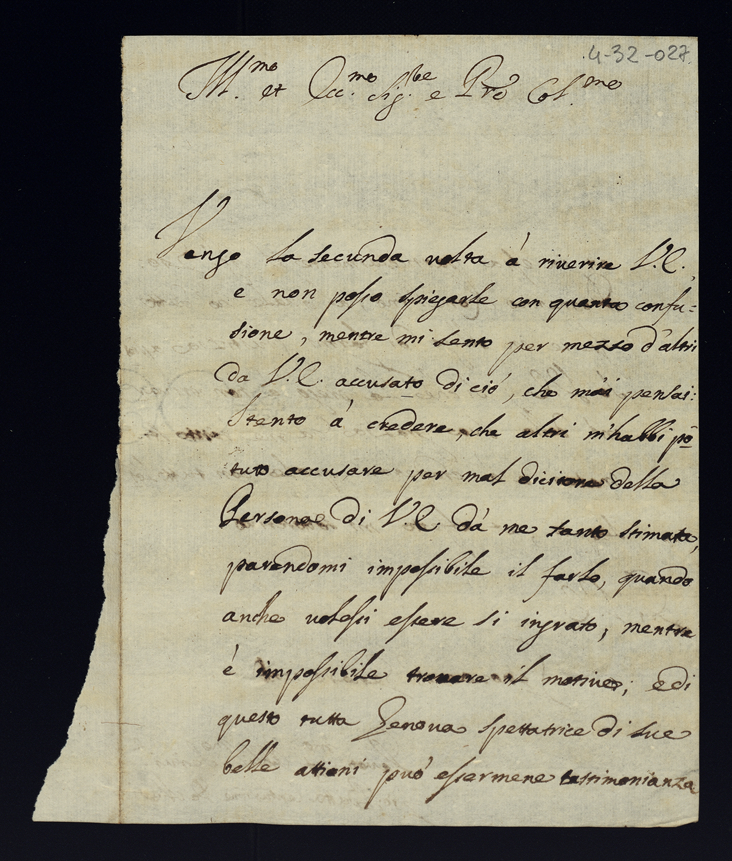 4-32-027
Ill.mo et Ecc.mo Sig.re e Pro Col.mo
Vengo la secunda volta à riverire V.E.,
e non posso spiegarle con quanta confu-
sione, mentre mi sento per mezzo d'altri
da V.E. accusato di ciò, che mai pensai:
Stento à credere, che altri m'habbi po
tuto accusare per mal diciore della
Persona di V.E. dà me tanto stimata,
parendomi impossibile il farlo, quando
anche volessi essere si ingrato, mentre
è impossibile trovare il motivo; e di
questo tutta Genova spettatrice di sue
belle attioni può essermene testimonianza